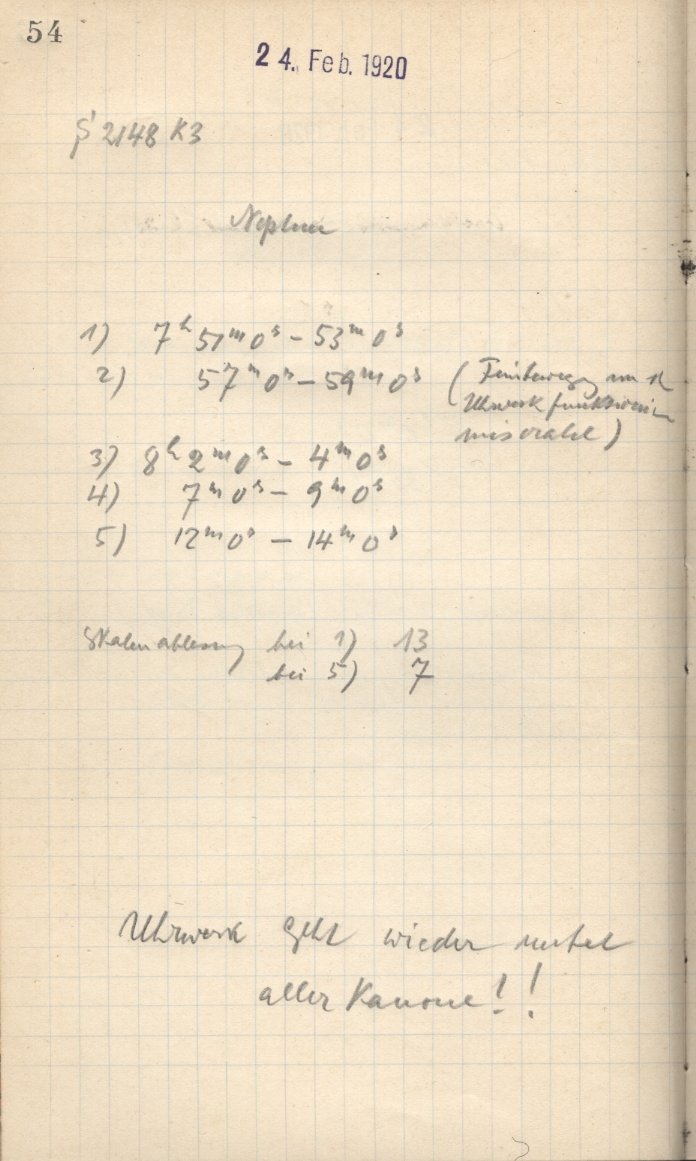 54
24. Feb. 1920
2148 K3
Neptun
1) 7h 51m 0s – 53m 0s
2) 57m 0s – 59m 0s (Feinbewegg und
Uhrwerk funktionieren
miserabel)
3) 8h 2m 0s – 4m 0s
4) 7m 0s – 9m 0s
5) 12m 0s – 14m 0s
Skalenablesung bei 1) 13
bei 5) 7
Uhrwerk geht wieder unter
aller Kanone!!